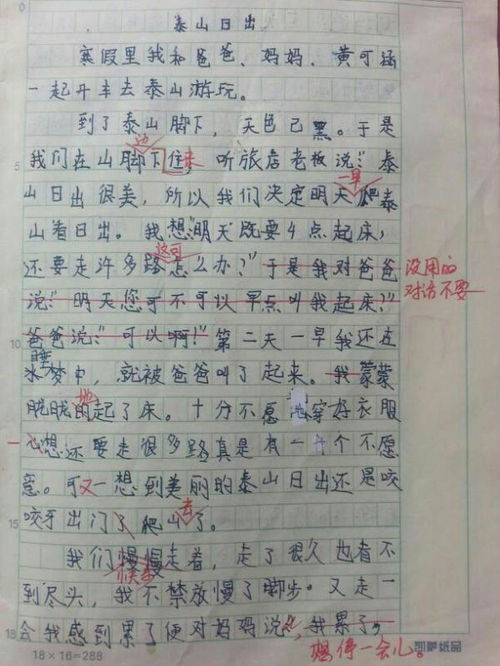 泰山日出
寒假里我和爸爸、妈妈、黄可涵
一起开车去泰山游玩。
到了泰山脚下，天色已黑。于是
边
我们在山脚下住来，听旅店老板说："泰
一早
山日出很美，所以我们决定明天爬泰
山看日出。我想"明天既要4点起床，
这可
还要走许多路怎么办？"于是我对爸爸
没用的
对话不要
说："明天您可不可以早点叫我起床？"
爸爸说："可以啊！"第二天一早我还在
睡
梦中，就被爸爸叫了起来。我蒙蒙
地
胧胧的起了床。十分不愿 穿好衣服
心想还要走很多路真是有一千个不愿
意。可又一想到美丽的泰山日出还是咬
去
咬牙出门了爬山了。
我们慢慢走着，走了很久也看不
到尽头，我不禁放慢了脚步。又走一
会我感到累了便对妈妈说，我累了，
想停一会儿。
0
5
10
15
18
18×16=288
凯萨纸品